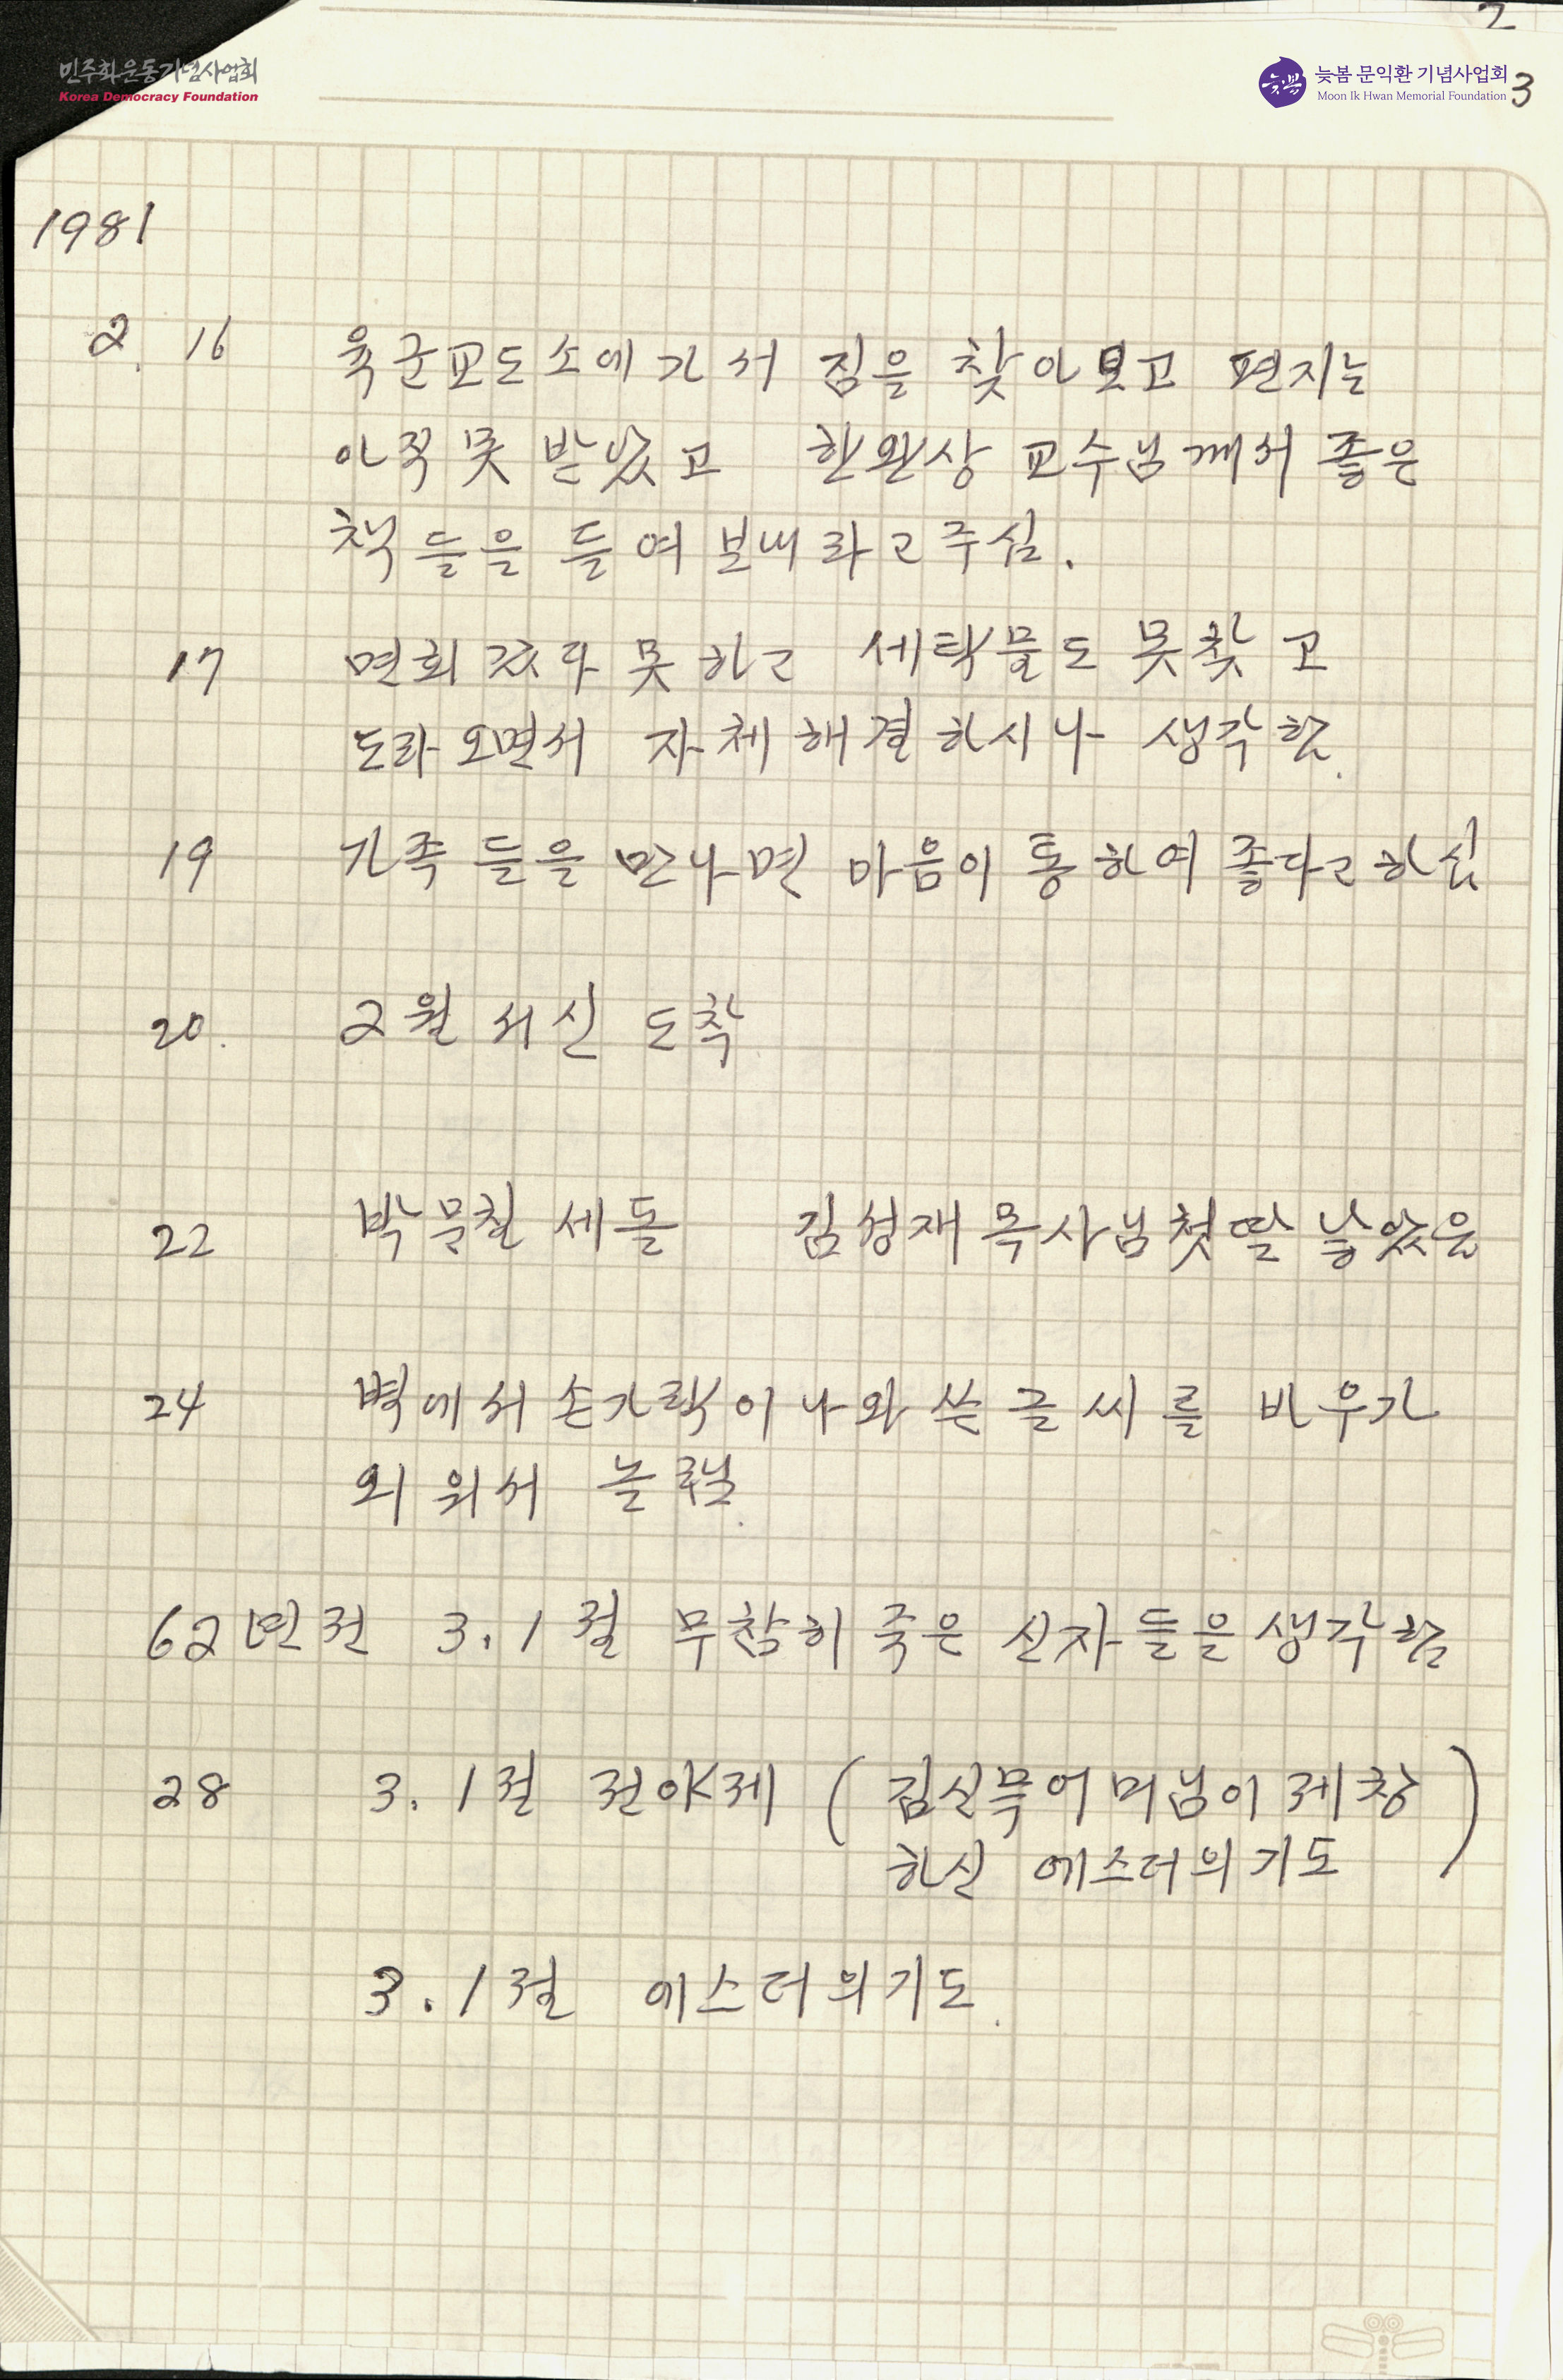 2
민주화운동기념사업회
Korea Democracy Foundation
늦봄
늦봄 문익환 기념사업회
Moon Ik Hwan Memorial Foundation
3
1981
2. 16 육군교도소에 가서 짐을 찾아보고 편지는
아직 못 받았고 한완상 교수님께서 좋은
책들을 들여보내라고 주심.
17 면회 갔다 못하고 세탁물도 못찾고
도라오면서 자체 해결하시나 생각함.
19 가족들을 만나면 마음이 통하여 좋다고 하심
20. 2월 서신 도착
22 박문칠 세돌 김성재 목사님 첫딸 낳았음
24 벽에서 손가락이 나와 쓴 글씨를 바우가
외워서 놀램.
62년전 3.1절 무참히 죽은 신자들을 생각함
28 3.1절 전야제 (김신묵어머님이 제창
하신 에스더의 기도)
3.1절 에스더의 기도.